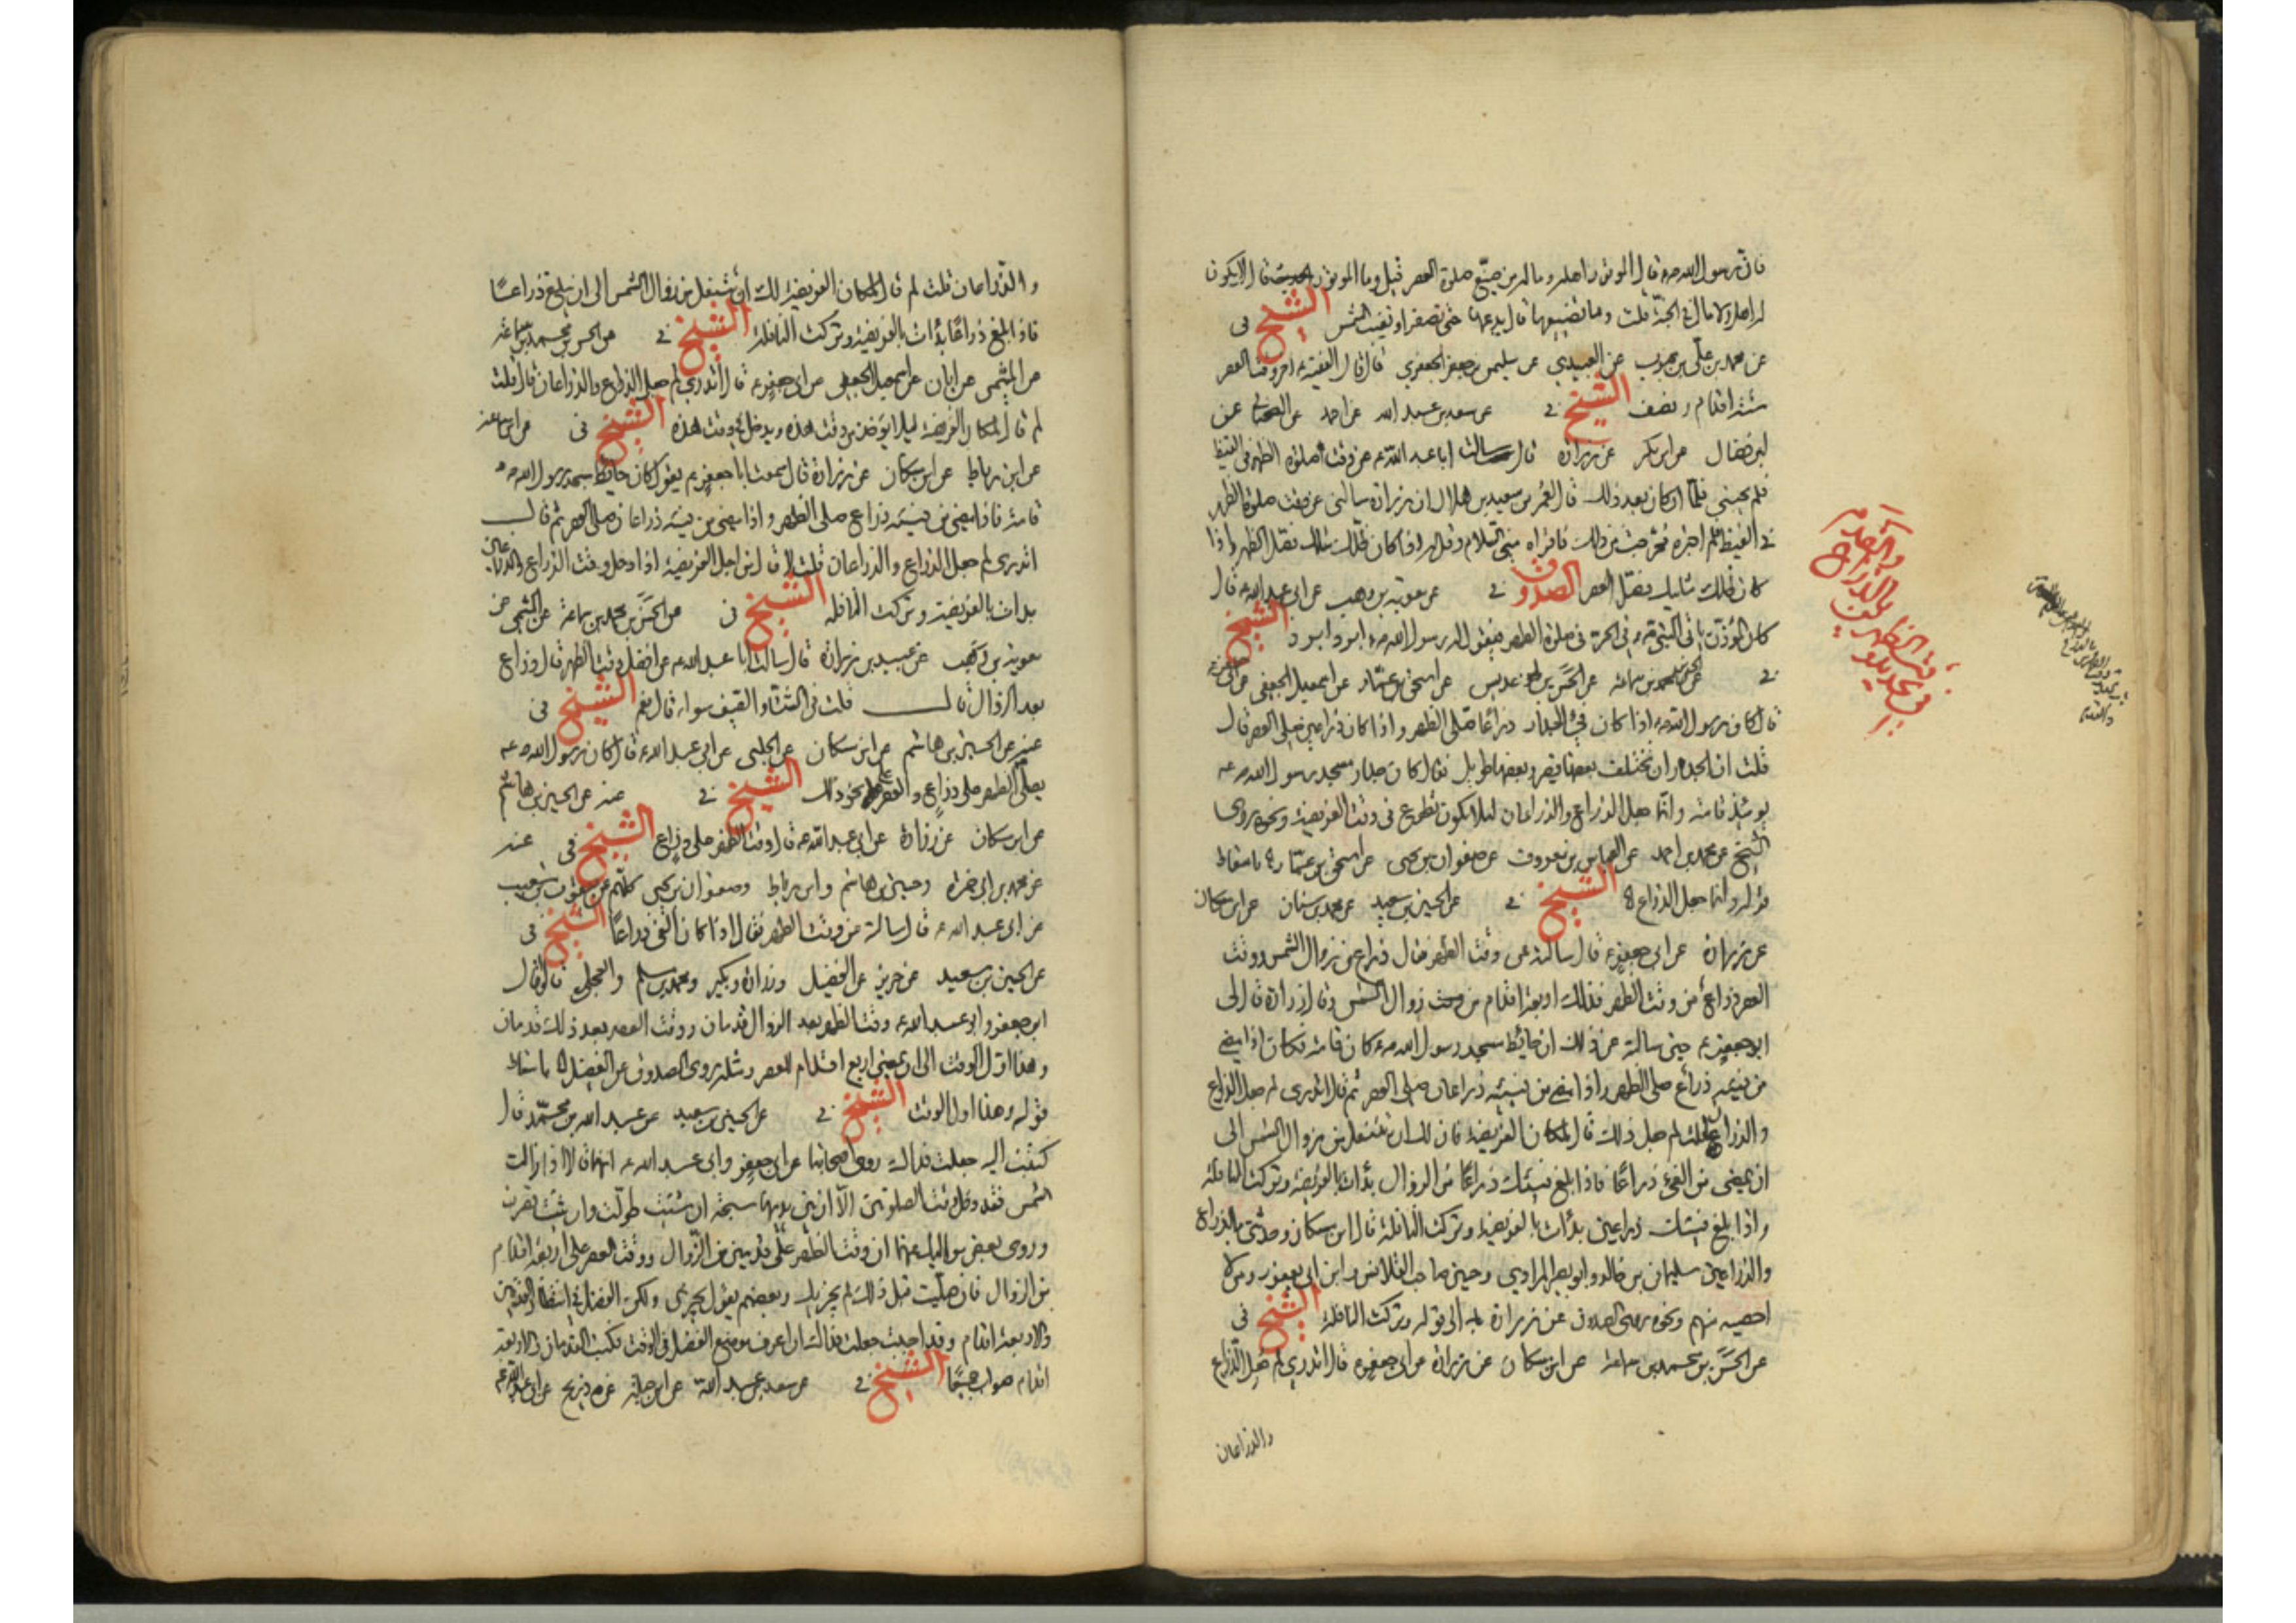 فان رسول الله ص قال الموتور اهله وماله من ضيّع صلوة العصر قيل وما الموتور قال لا يكون
له اهل ولا مال في الجنّة قلت وما تضييعها قال يدعها حتى تصفر او تغيب الشمس الشيخ في
عن محمد بن علي بن محبوب عن العبيدي عن سليمن بن جعفر الجعفري قال قال الفقيه ع اخر وقت العصر
ستة اقدام ونصف الشيخ في عن سعد بن عبد الله عن احمد عن الحجال عن
ابن بكير عن زرارة قال سالت ابا عبد الله ع عن وقت صلوة الظهر في القيظ
فلم يجبني فلمّا ان كان بعد ذلك قال لعمر بن سعيد بن هلال ان زرارة سالني عن وقت صلوة الظهر
في القيظ فلم اخبره فخرجت من ذلك فاقراه مني السلام وقل له اذا كان ظلك مثلك فصل الظهر واذا
كان ظلك مثليك فصل العصر الصدوق في عن معوية بن وهب عن ابي عبد الله ع قال
كان المؤذن ياتي النبي ص في الحر في صلوة الظهر فيقول له رسول الله ص ابرد ابرد الشيخ
في عن الحسن بن محمد بن سماعة عن الحسن بن عديس عن اسحق بن عمّار عن اسمعيل الجعفي عن ابي جعفر ع
قال كان رسول الله ص اذا كان فئ الجدار ذراعًا صلى الظهر واذا كان ذراعين صلى العصر قال
قلت ان الجدران تختلف بعضها قصير وبعضها طويل فقال كان جدار مسجد رسول الله ص
يومئذ قامة وانما جعل الذراع والذراعان لئلا يكون تطوع في وقت الفريضة ونحوه روى
الشيخ عن محمد بن احمد عن العباس بن معروف عن صفوان بن يحيى عن اسحق بن عمّار باسقاط
قوله وانما جعل الذراع الشيخ في عن الحسين بن سعيد عن محمد بن سنان عن ابن مسكان
عن زرارة عن ابي جعفر ع قال سالته عن وقت الظهر فقال ذراع من زوال الشمس ووقت
العصر ذراع من وقت الظهر فذلك اربعة اقدام من زوال الشمس وقال زرارة قال لي
ابو جعفر ع حين سالته عن ذلك ان حائط مسجد رسول الله ص كان قامة فكان اذا مضى
من فيئه ذراع صلى الظهر واذا مضى من فيئه ذراعان صلى العصر ثم قال اتدري لم جعل الذراع
والذراعان قلت لم جعل ذلك قال لمكان الفريضة فان لك ان تتنفل من زوال الشمس الى
ان يمضي من الفيء ذراعًا فاذا بلغ فيئك ذراعًا من الزوال بدأت بالفريضة وتركت النافلة
واذا بلغ فيئك ذراعين بدأت بالفريضة وتركت النافلة قال ابن مسكان وحدثني بالذراع
والذراعين سليمان بن خالد وابو بصير المرادي وحسين صاحب القلانس وابن ابي يعفور ومن لا
احصيه منهم ونحوه روى الصدوق عن زرارة الى قوله وتركت النافلة الشيخ في
عن الحسن بن محمد بن سماعة عن ابن مسكان عن زرارة عن ابي جعفر ع قال اتدري لم جعل الذراع
والذراعان
والذراعان قلت لم قال لمكان الفريضة لك ان تتنفل من زوال الشمس الى ان يبلغ ذراعًا
فاذا بلغ ذراعًا بدأت بالفريضة وتركت النافلة الشيخ في عن الحسن بن محمد بن سماعة
عن الميثمي عن ابان عن اسمعيل الجعفي عن ابي جعفر ع قال اتدري لم جعل الذراع والذراعان قال قلت
لم قال لمكان الفريضة ليلا يؤخذ من وقت هذه ويدخل في وقت هذه الشيخ في
عن ابن رباط عن ابن مسكان عن زرارة قال سمعت ابا جعفر ع يقول كان حائط مسجد رسول الله ص
قامة فاذا مضى من فيئه ذراع صلى الظهر واذا مضى من فيئه ذراعان صلى العصر ثم قال
اتدري لم جعل الذراع والذراعان قلت لا قال من اجل الفريضة اذا دخل وقت الذراع والذراعان
بدات بالفريضة وتركت النافلة الشيخ في عن الحسن بن محمد بن سماعة عن الميثمي عن
معوية بن وهب عن عبيد بن زرارة قال سالت ابا عبد الله ع عن افضل وقت الظهر قال ذراع
بعد الزوال قال قلت في الشتاء والصيف سواء قال نعم الشيخ في
عنه عن الحسين بن هاشم عن ابن مسكان عن الحلبي عن ابي عبد الله ع قال كان رسول الله ص
يصلي الظهر على ذراع والعصر على نحو ذلك الشيخ في عنه عن الحسين بن هاشم
عن ابن مسكان عن زرارة عن ابي عبد الله ع قال وقت الظهر على ذراع الشيخ في عنه
عن محمد بن ابي حمزة وحسين بن هاشم وابن رباط وصفوان بن يحيى كلهم عن يعقوب بن شعيب
عن ابي عبد الله ع قال سالته عن وقت الظهر فقال اذا كان الفئ ذراعًا الشيخ في
عن الحسين بن سعيد عن حريز عن الفضيل وزرارة وبكير ومحمد بن مسلم والعجلي قالوا قال
ابو جعفر وابو عبد الله ع وقت الظهر بعد الزوال قدمان ووقت العصر بعد ذلك قدمان
وهذا اول الوقت الى ان يمضي اربع اقدام للعصر ومثله روى الصدوق عن الفضيل باسقاط
قوله وهذا اول الوقت الشيخ في عن الحسين بن سعيد عن عبد الله بن محمّد قال
كتبت اليه جعلت فداك روى اصحابنا عن ابي جعفر وابي عبد الله ع انهما قالا اذا زالت
الشمس فقد دخل وقت الصلوتين الا ان بين يديهما سبحة ان شئت طولت وان شئت قصرت
وروى بعض مواليك عنهما ان وقت الظهر على قدمين من الزّوال ووقت العصر على اربعة اقدام
من الزوال فان صليت قبل ذلك لم يجزيك وبعضهم يقول يجزي ولكن الفضل في انتظار القدمين
والاربعة اقدام وقد احببت جعلت فداك ان اعرف موضع الفضل في الوقت فكتب القدمان والاربعة
اقدام صواب جميعًا الشيخ في عن سعد بن عبد الله عن ابن جبلة عن ذريح عن ابي عبد الله ع